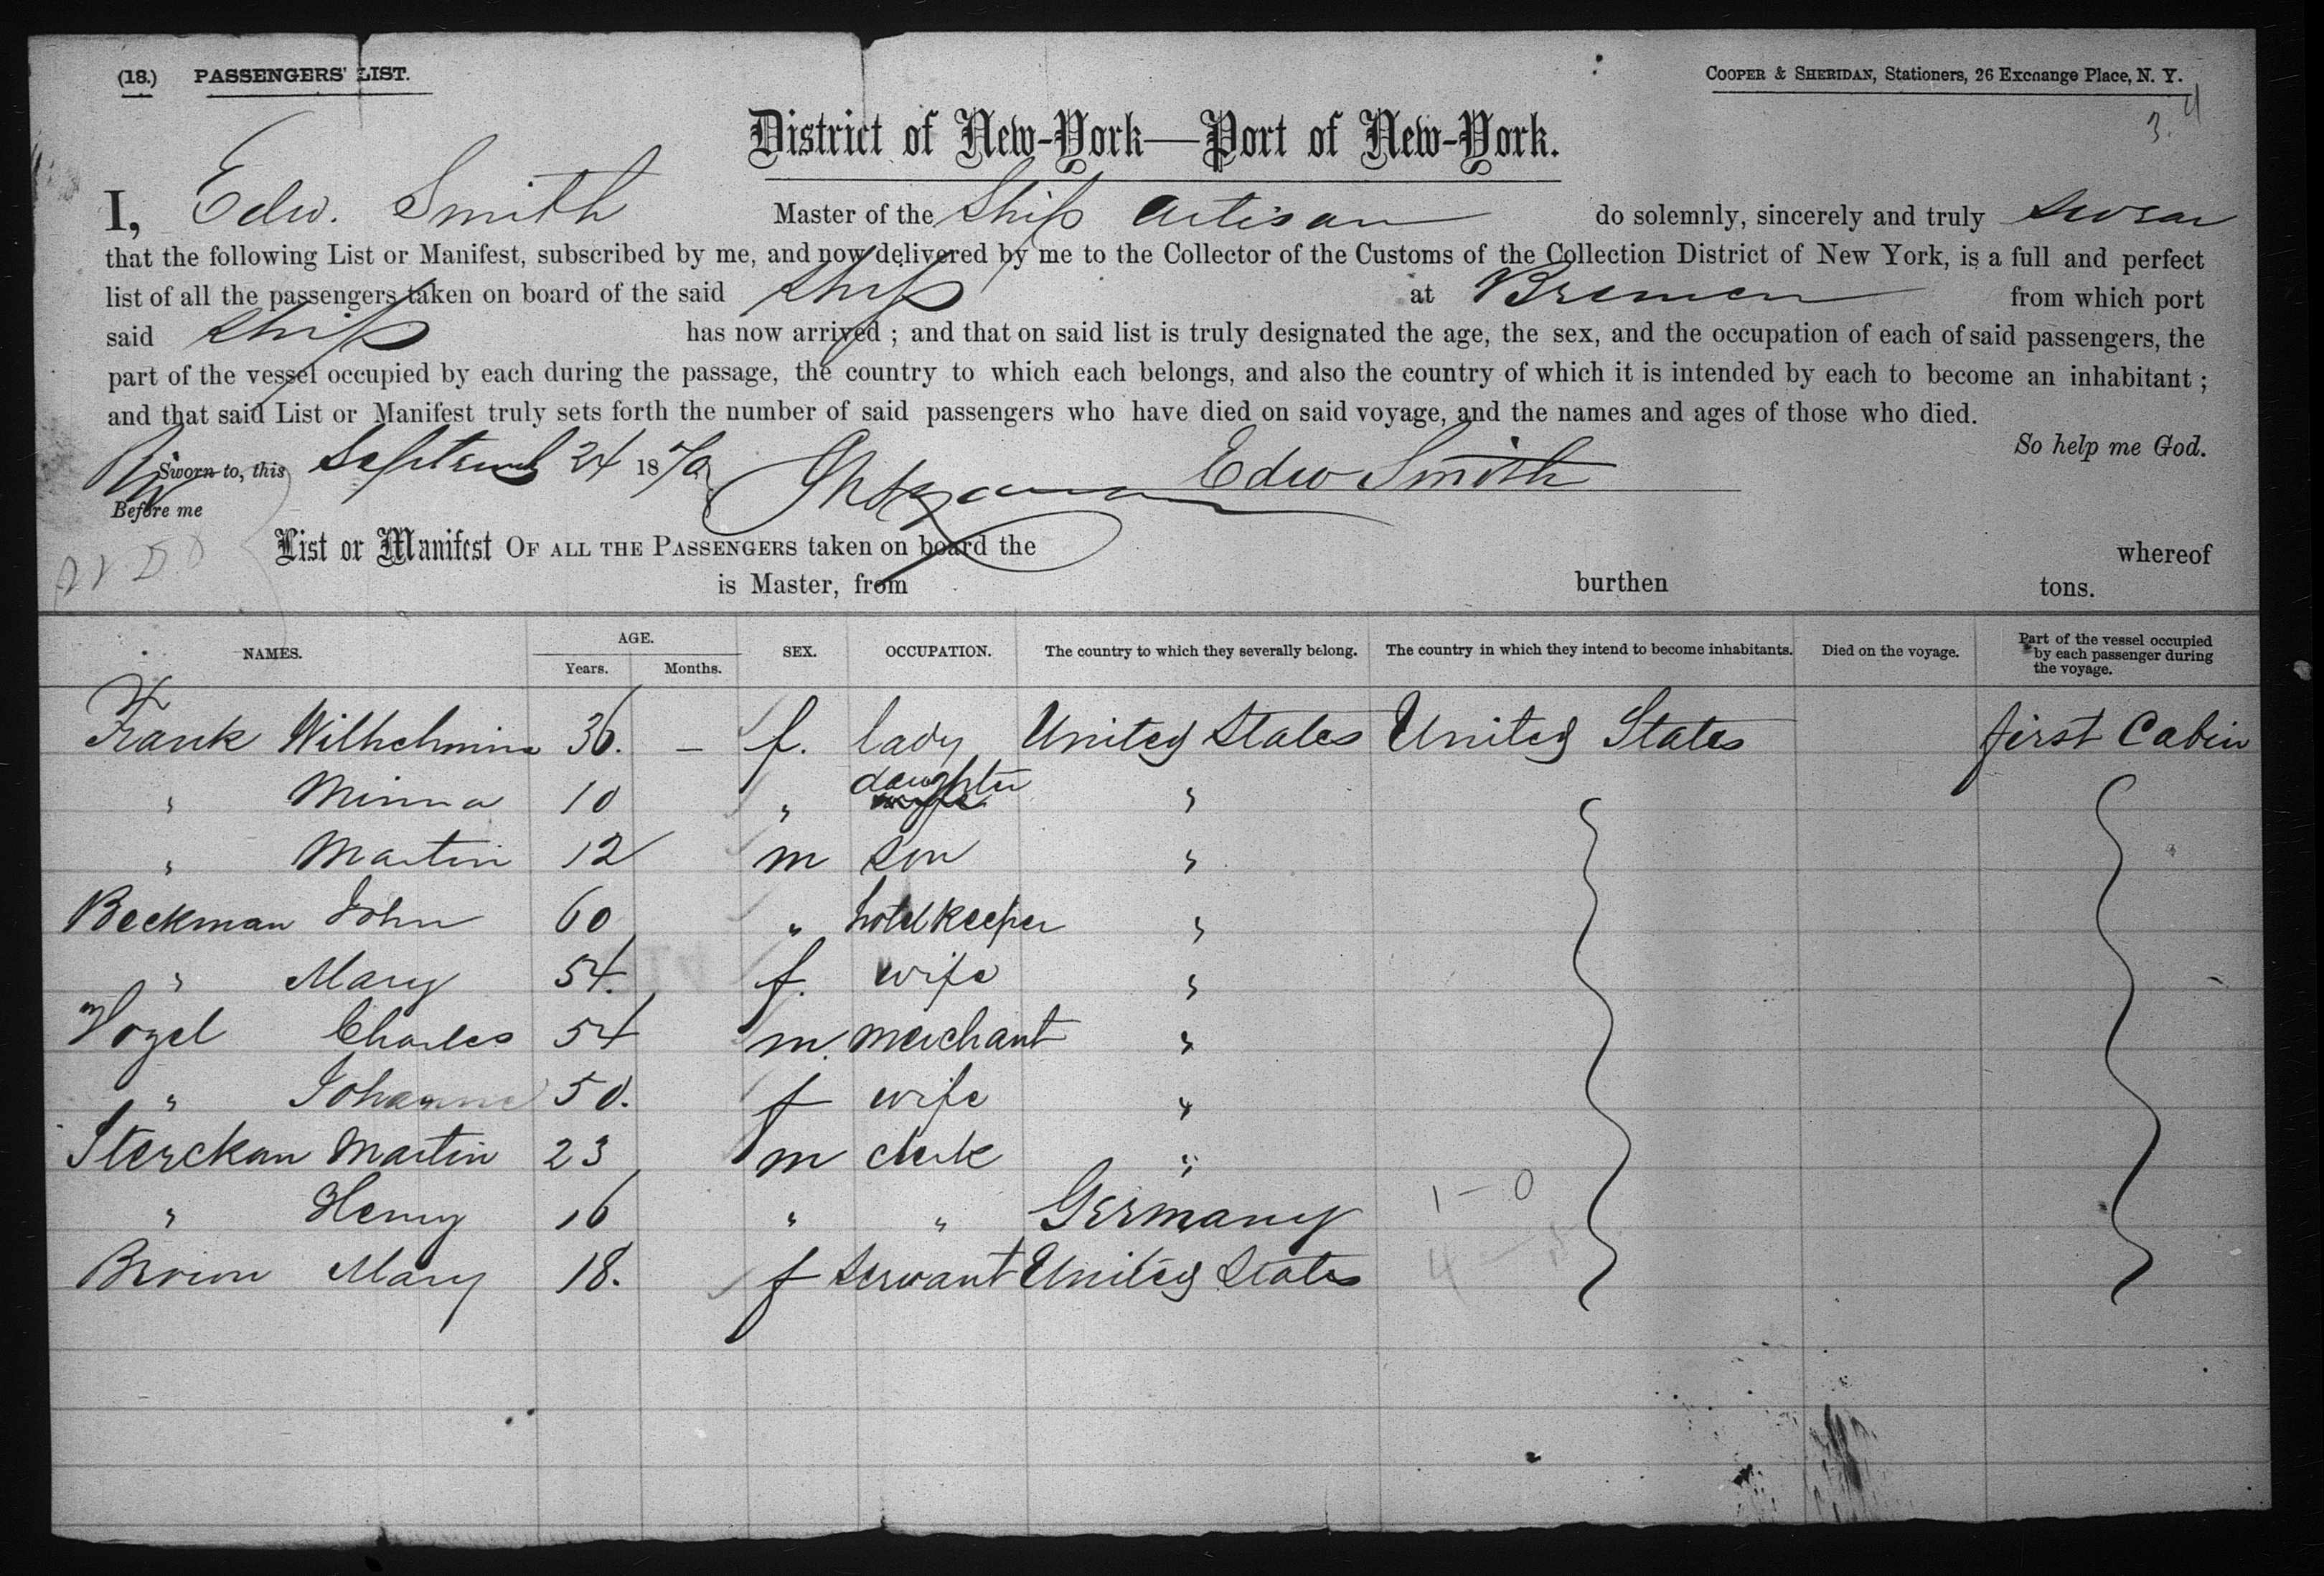 (18.) PASSENGERS' LIST. COOPER & SHERIDAN, Stationers, 26 Exchange Place, N. Y.
District of New-York—Port of New-York.
I, Edw. Smith Master of the Ship Artisan do solemnly, sincerely and truly swear
that the following List or Manifest, subscribed by me, and now delivered by me to the Collector of the Customs of the Collection District of New York, is a full and perfect
list of all the passengers taken on board of the said ship at Bremen from which port
said ship has now arrived ; and that on said list is truly designated the age, the sex, and the occupation of each of said passengers, the
part of the vessel occupied by each during the passage, the country to which each belongs, and also the country of which it is intended by each to become an inhabitant ;
and that said List or Manifest truly sets forth the number of said passengers who have died on said voyage, and the names and ages of those who died.
So help me God.
Sworn to, this September 24 1870 Edw Smith
Before me
List or Manifest OF ALL THE PASSENGERS taken on board the whereof
is Master, from burthen tons.
NAMES. AGE. Years. Months. SEX. OCCUPATION. The country to which they severally belong. The country in which they intend to become inhabitants. Died on the voyage. Part of the vessel occupied by each passenger during the voyage.
Frank Wilhelmine 36. – f. lady United States United States first Cabin
" Minna 10 " daughter "
" Martin 12 m son "
Beckman John 60 " hotelkeeper "
" Mary 54. f. wife "
Vogel Charles 54 m. merchant "
" Johanne 50. f wife "
Sterckan Martin 23 m clerk "
" Henry 16 " " Germany 1 – 0
Brown Mary 18. f servant United States